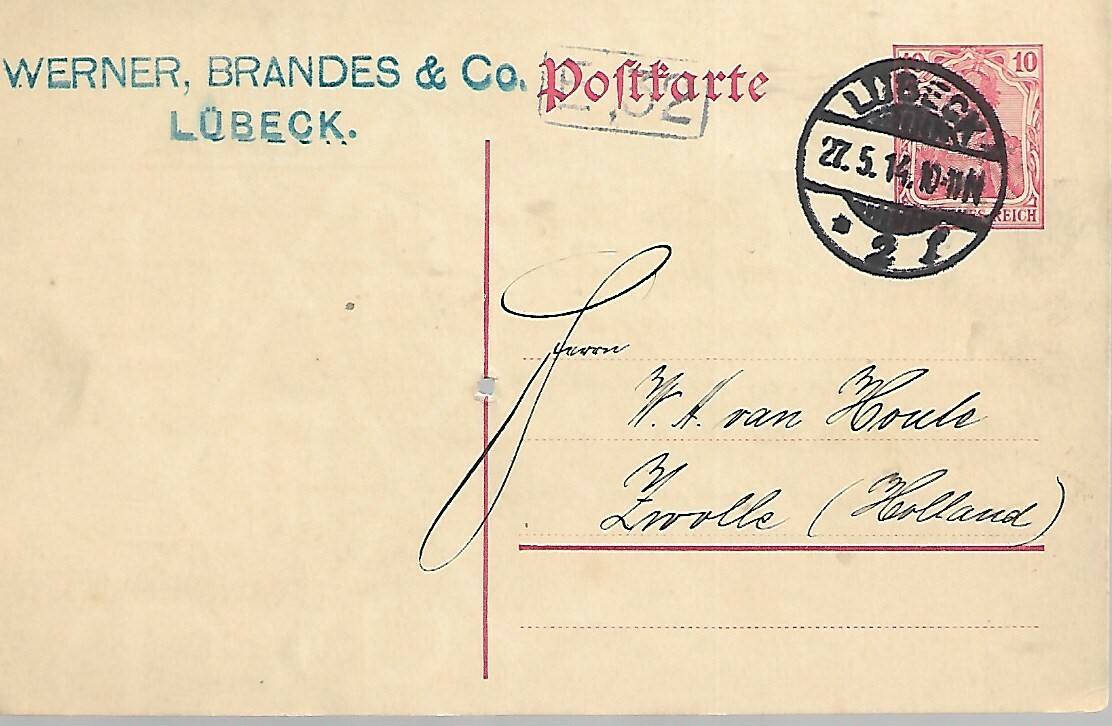 WERNER, BRANDES & Co.
LÜBECK.
Postkarte
10
LÜBECK
27.5.14. 10-11N
* 2 f
REICH
Herrn
W. A. van Houte
Zwolle (Holland)